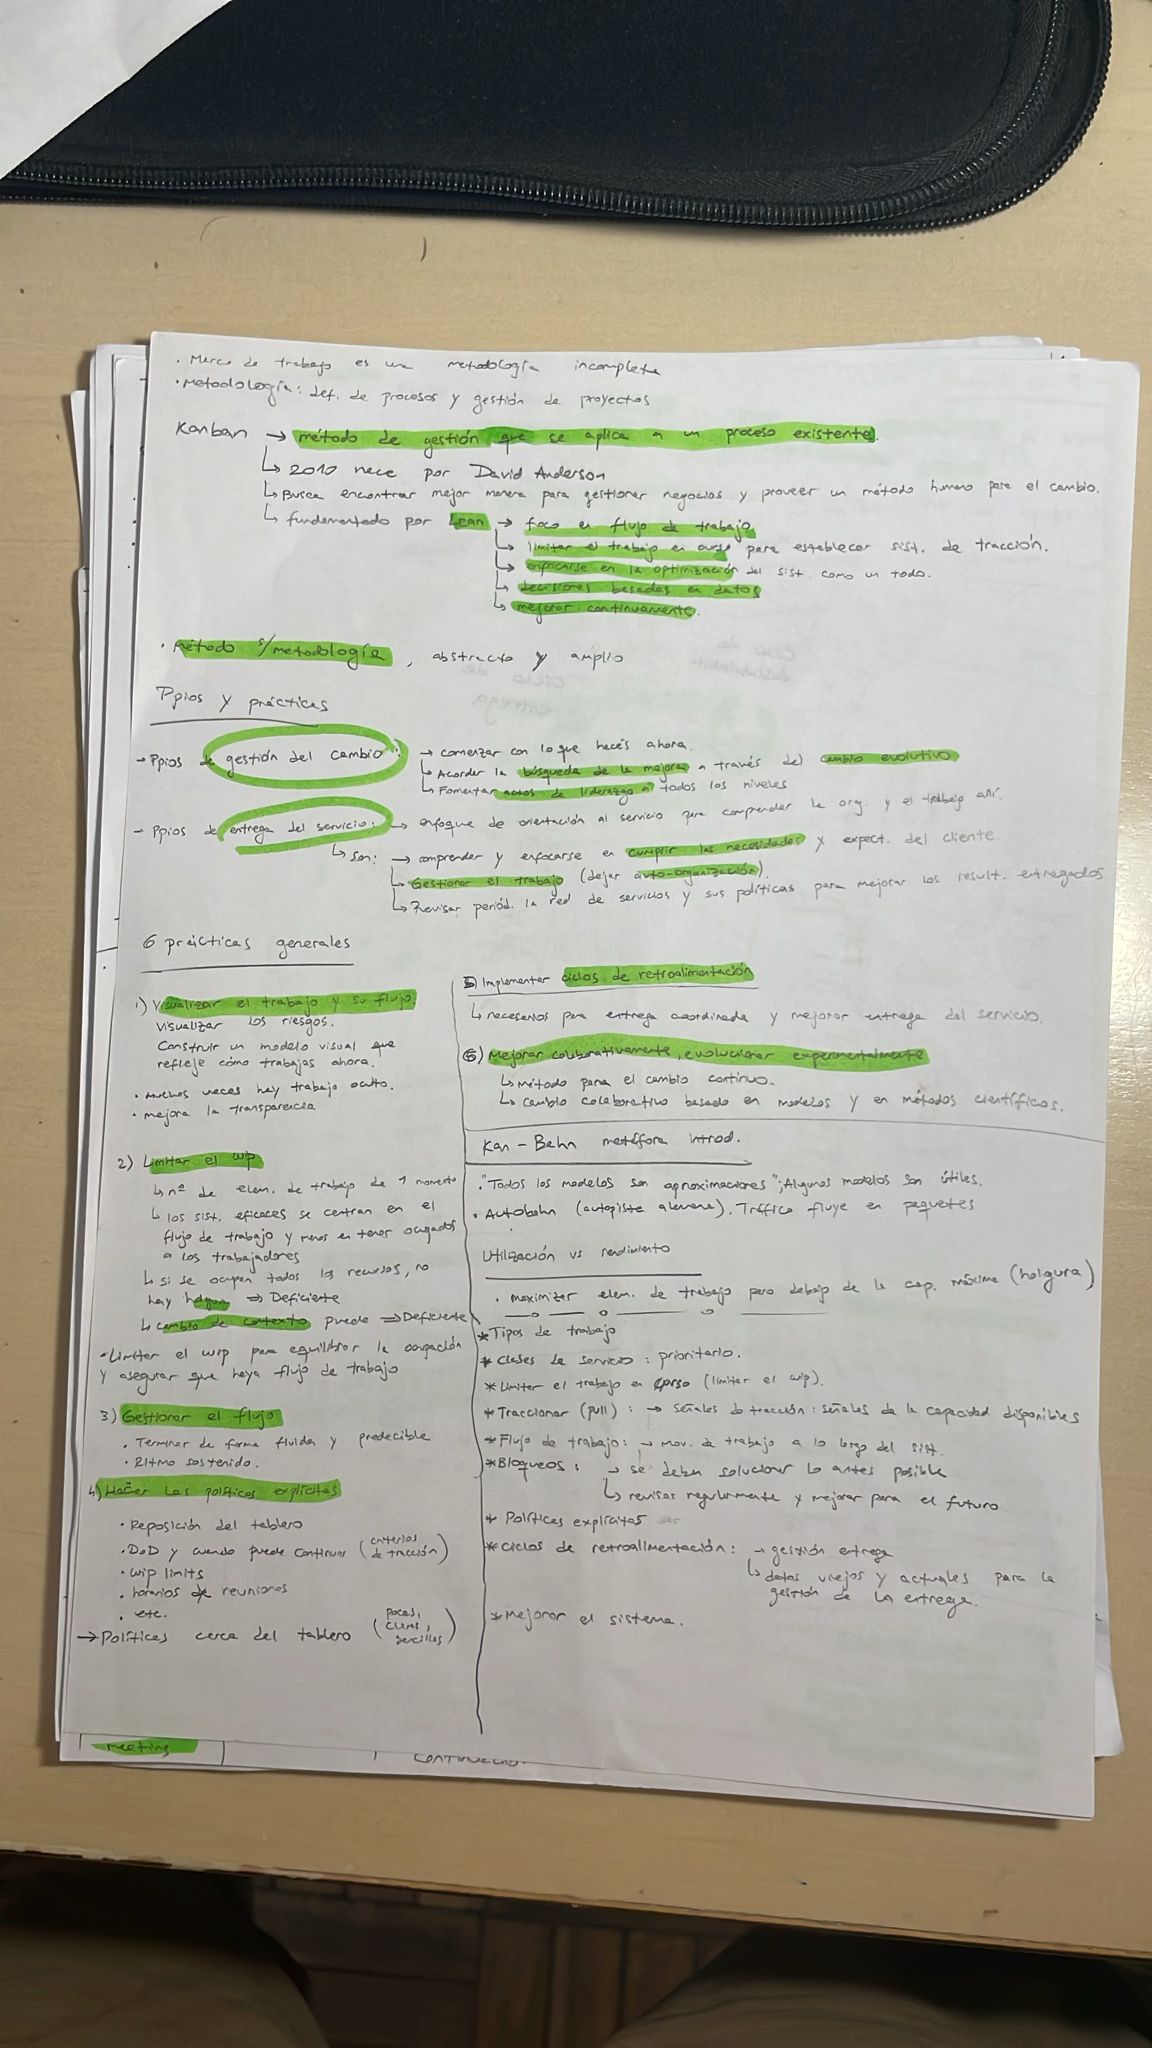 · Marco de trabajo es una metodología incompleta
· Metodología: def. de procesos y gestión de proyectos
Kanban → método de gestión que se aplica a un proceso existente.
↳ 2010 nace por David Anderson
↳ Busca encontrar mejor manera para gestionar negocios y proveer un método humano para el cambio.
↳ fundamentado por Lean → foco en flujo de trabajo
↳ limitar el trabajo en curso para establecer sist. de tracción.
↳ enfocarse en la optimización del sist. como un todo.
↳ decisiones basadas en datos
↳ mejorar continuamente.
· Método s/metodología, abstracto y amplio
Ppios y prácticas
→ Ppios de gestión del cambio: → comenzar con lo que hacés ahora.
↳ Acordar la búsqueda de la mejora a través del cambio evolutivo
↳ Fomentar actos de liderazgo a todos los niveles
→ Ppios de entrega del servicio: → enfoque de orientación al servicio para comprender la org. y el trabajo ahí.
↳ Son: → comprender y enfocarse en cumplir las necesidades y expect. del cliente.
↳ Gestionar el trabajo (dejar auto-organización).
↳ Revisar periód. la red de servicios y sus políticas para mejorar los result. entregados
6 prácticas generales
1) Visualizar el trabajo y su flujo
Visualizar los riesgos.
Construir un modelo visual que
refleje cómo trabajas ahora.
· Muchas veces hay trabajo oculto.
· mejora la transparencia
2) Limitar el wip
↳ nº de elem. de trabajo de 1 momento
↳ los sist. eficaces se centran en el
flujo de trabajo y menos en tener ocupados
a los trabajadores
↳ si se ocupan todos los recursos, no
hay holgura ⇒ Deficiente
↳ cambio de contexto puede ⇒ Deficiente
· Limitar el wip para equilibrar la ocupación
y asegurar que haya flujo de trabajo
3) Gestionar el flujo
· Terminar de forma fluida y predecible
· Ritmo sostenido.
4) Hacer las políticas explícitas
· Reposición del tablero
· DoD y cuando puede continuar (criterios de tracción)
· wip limits
· horarios de reuniones
· etc.
→ Políticas cerca del tablero (pocas, claras, sencillas)
5) Implementar ciclos de retroalimentación
↳ necesarios para entrega coordinada y mejorar entrega del servicio.
6) Mejorar colaborativamente, evolucionar experimentalmente
↳ Método para el cambio continuo.
↳ Cambio colaborativo basado en modelos y en métodos científicos.
Kan-Bahn metáfora introd.
· "Todos los modelos son aproximaciones"; Algunos modelos son útiles.
· Autobahn (autopista alemana). Tráfico fluye en paquetes
Utilización vs rendimiento
· maximizar elem. de trabajo pero debajo de la cap. máxima (holgura)
* Tipos de trabajo
* Clases de servicio: prioritario.
* Limitar el trabajo en curso (limitar el wip).
* Traccionar (pull): → señales de tracción: señales de la capacidad disponibles
* Flujo de trabajo: → mov. de trabajo a lo largo del sist.
* Bloqueos: → se deben solucionar lo antes posible
↳ revisar regularmente y mejorar para el futuro
* Políticas explícitas
* Ciclos de retroalimentación: → gestión entrega
↳ datos viejos y actuales para la
gestión de la entrega.
* Mejorar el sistema.
meeting